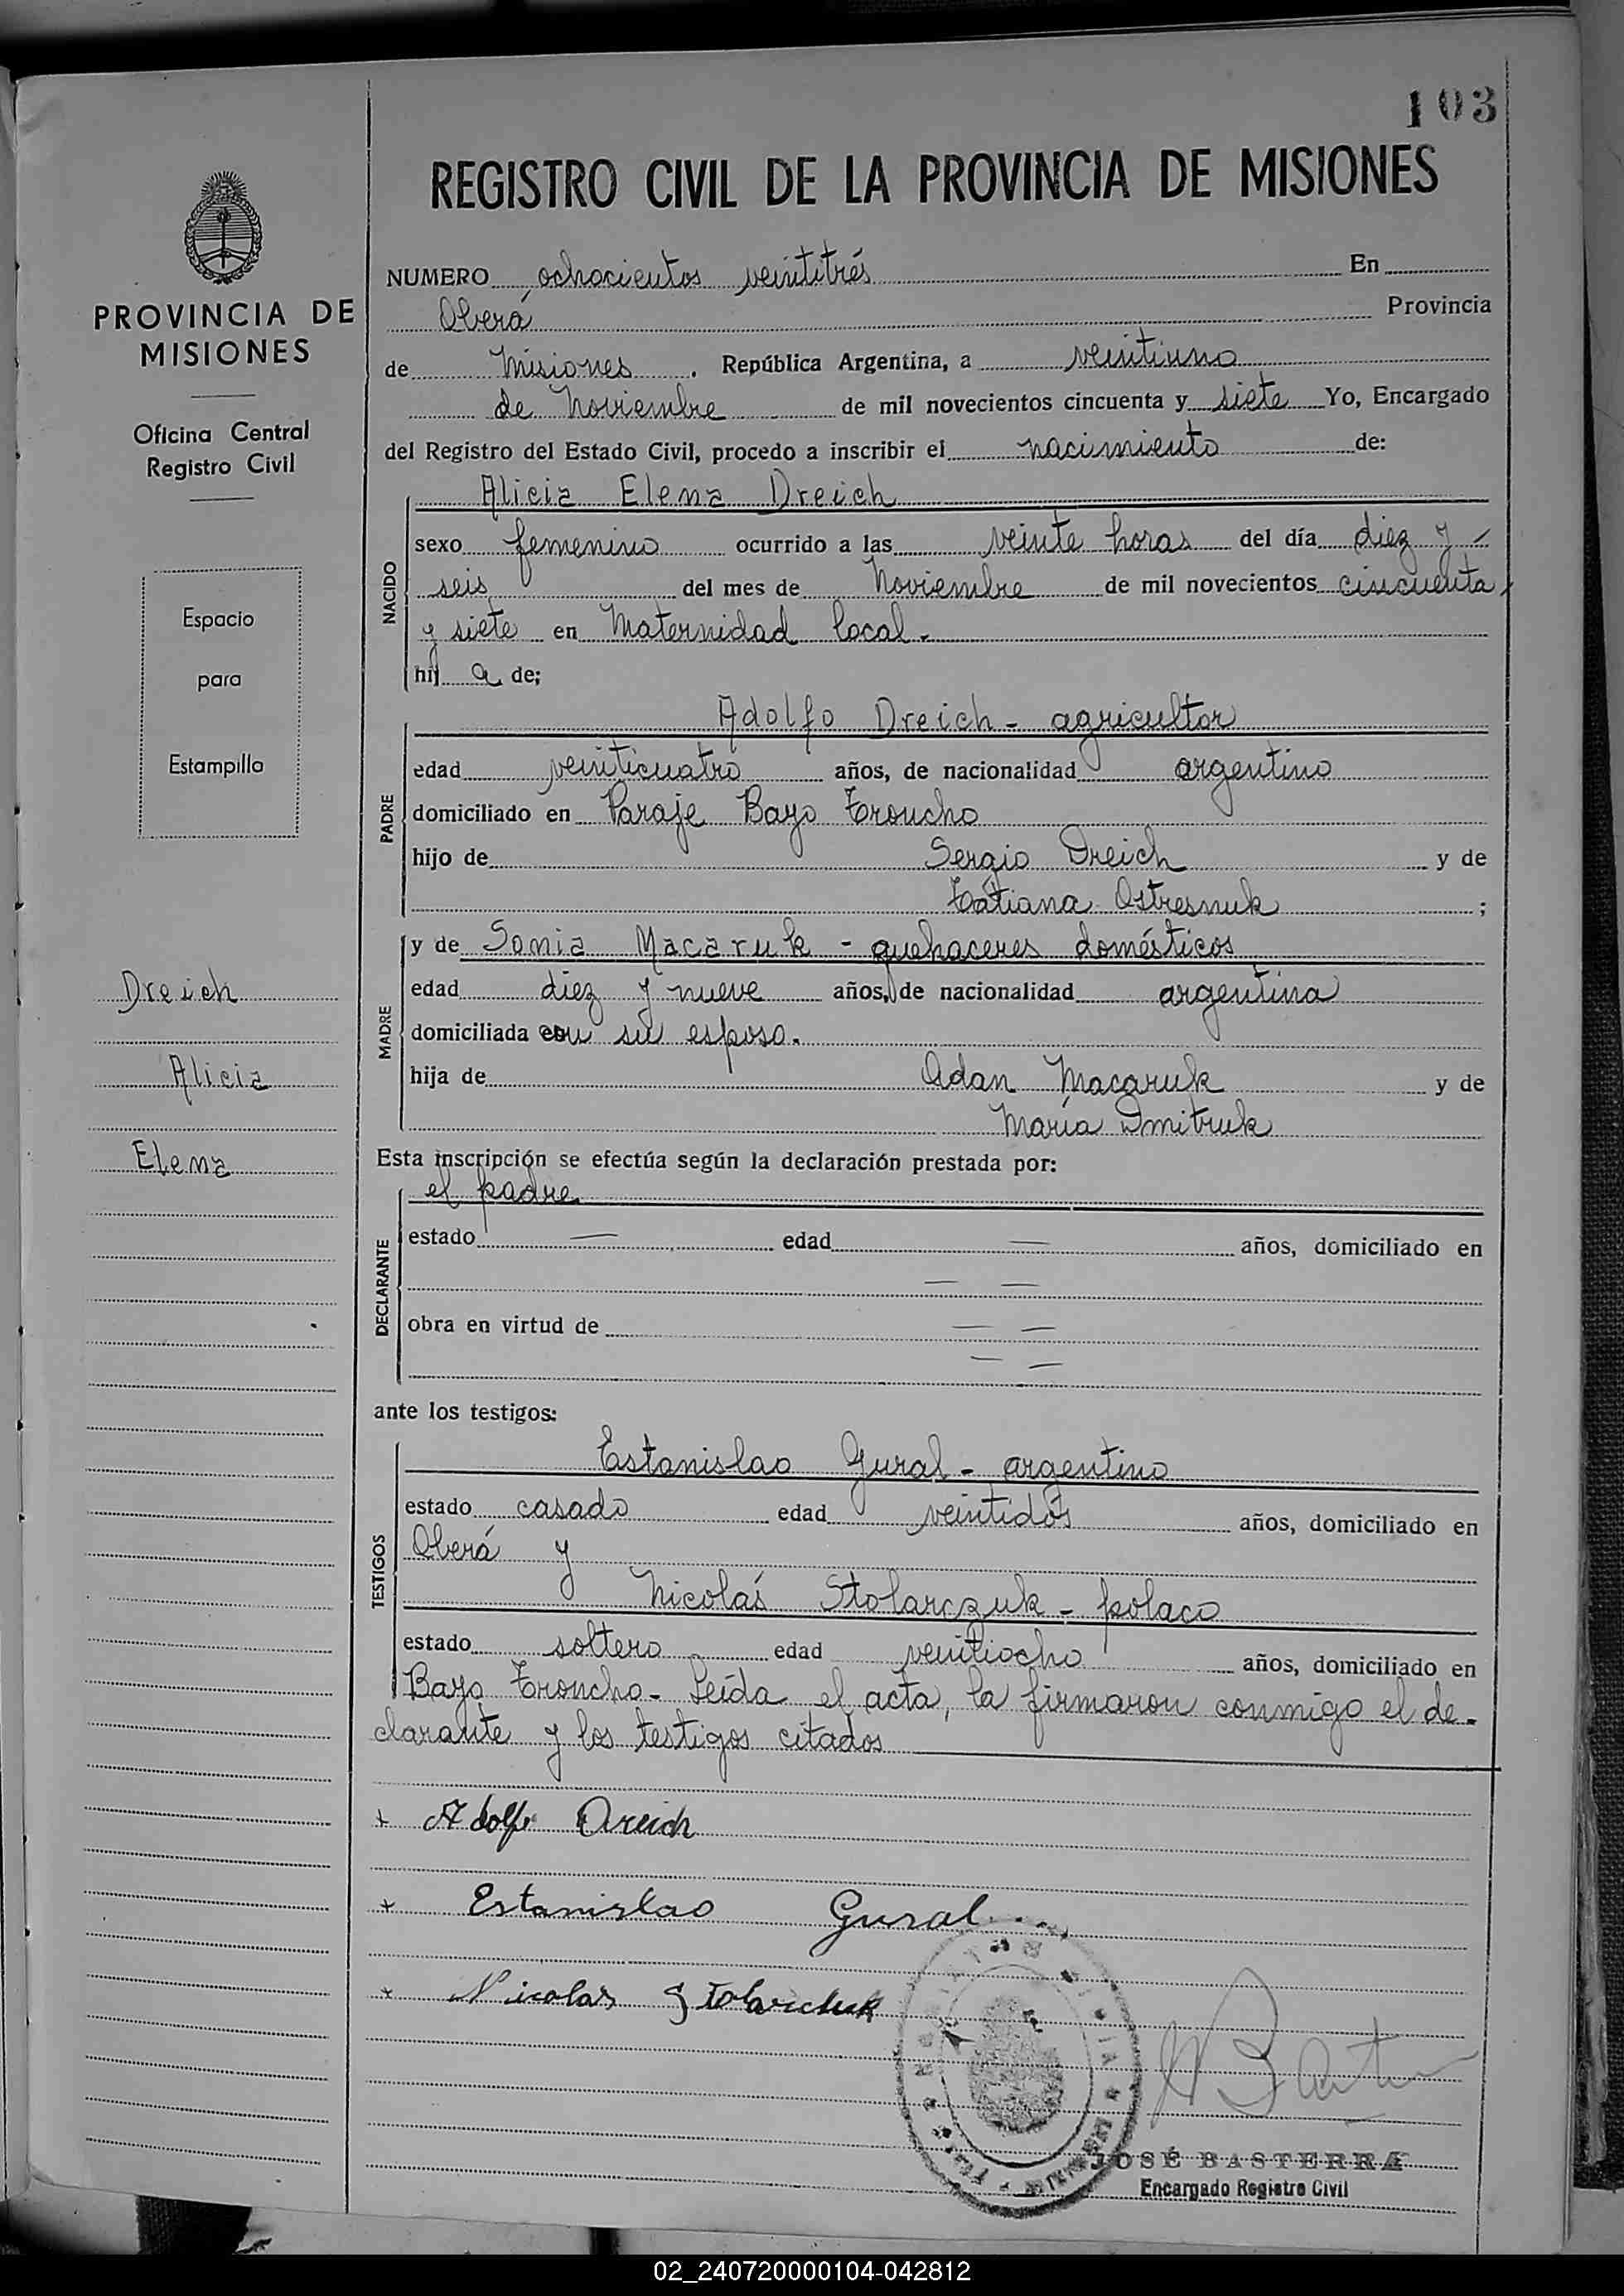 103
REGISTRO CIVIL DE LA PROVINCIA DE MISIONES
NUMERO ochocientos veintitrés En
Oberá Provincia
de Misiones . República Argentina, a veintiuno
de Noviembre de mil novecientos cincuenta y siete Yo, Encargado
del Registro del Estado Civil, procedo a inscribir el nacimiento de:
NACIDO
Alicia Elena Dreich
sexo femenino ocurrido a las veinte horas del día diez y
seis del mes de Noviembre de mil novecientos cincuenta
y siete en Maternidad local.
hij a de;
PADRE
Adolfo Dreich - agricultor
edad veinticuatro años, de nacionalidad argentino
domiciliado en Paraje Bayo Troncho
hijo de Sergio Dreich y de
Tatiana Ostresnuk ;
MADRE
y de Sonia Macaruk - quehaceres domésticos
edad diez y nueve años, de nacionalidad argentina
domiciliada con su esposo.
hija de Adan Macaruk y de
María Dmitruk
Esta inscripción se efectúa según la declaración prestada por:
DECLARANTE
el padre.
estado — edad — años, domiciliado en
— —
obra en virtud de — —
— —
ante los testigos:
TESTIGOS
Estanislao Gural - argentino
estado casado edad veintidós años, domiciliado en
Oberá y
Nicolás Stolarczuk - polaco
estado soltero edad veintiocho años, domiciliado en
Bayo Troncho - Leída el acta, la firmaron conmigo el de-
clarante y los testigos citados
Adolfo Dreich
Estanislao Gural
Nicolas Stolarchuk
JOSÉ BASTERRA
Encargado Registro Civil
PROVINCIA DE
MISIONES
Oficina Central
Registro Civil
Espacio
para
Estampilla
Dreich
Alicia
Elena
02_240720000104-042812